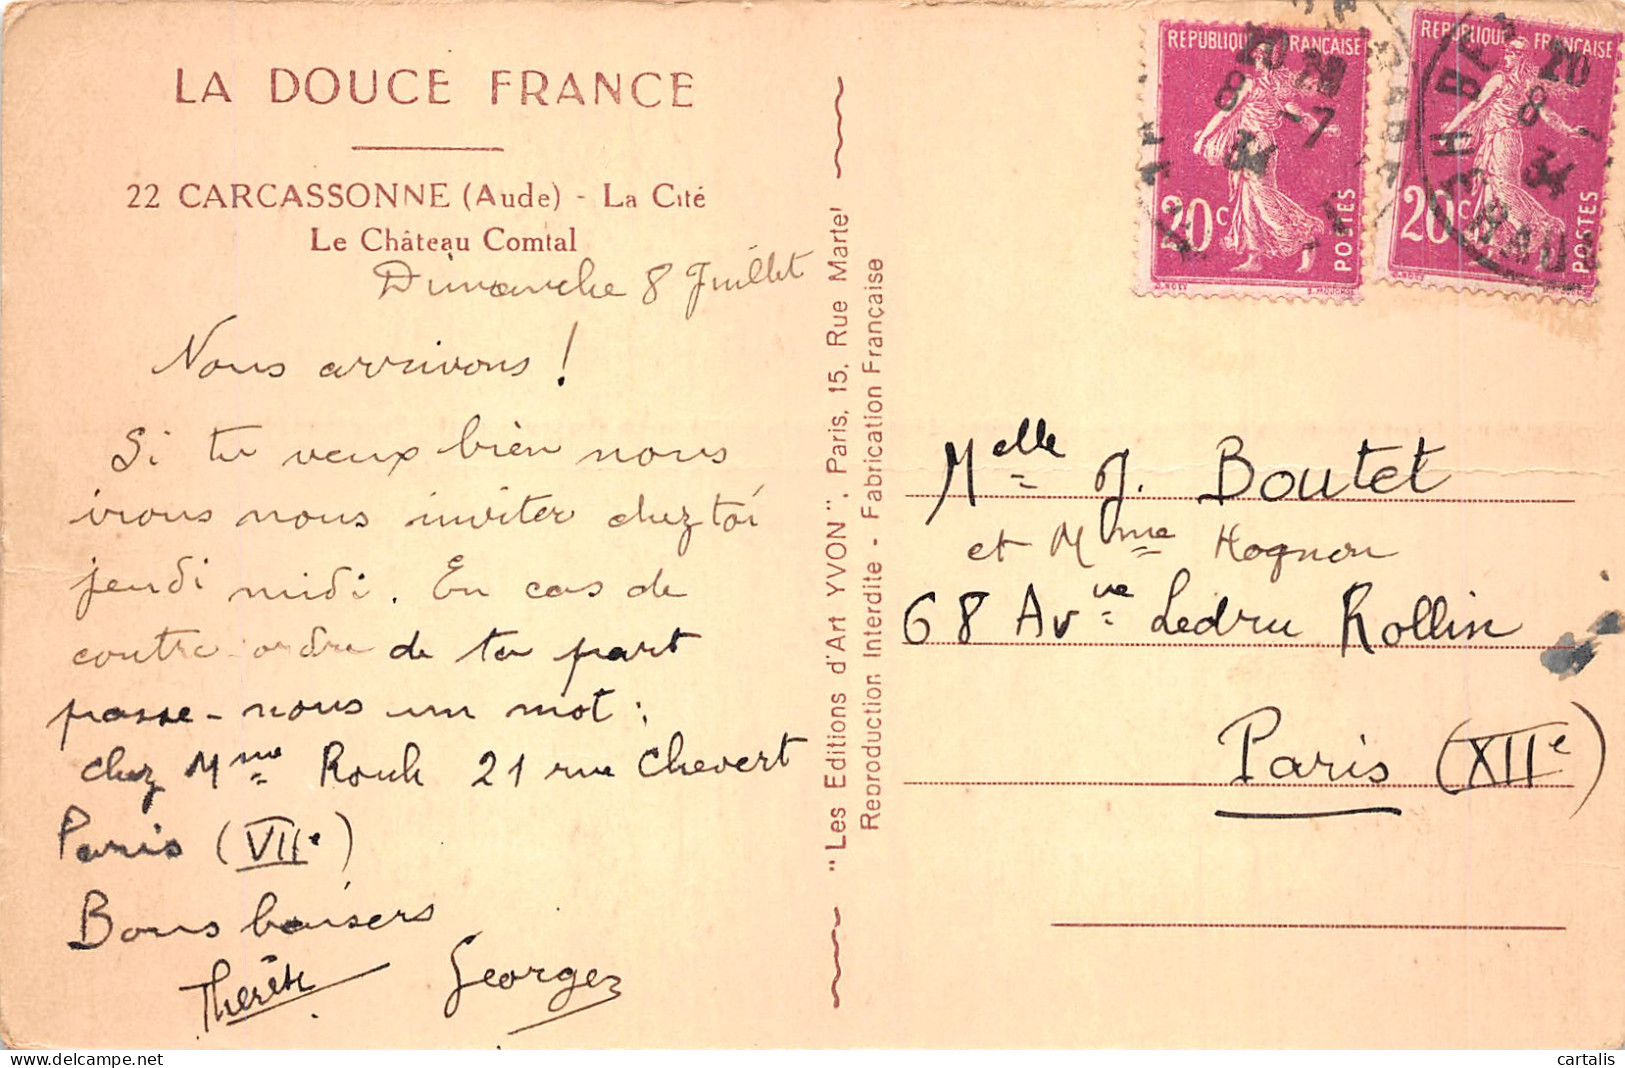 LA DOUCE FRANCE
22 CARCASSONNE (Aude) - La Cité
Le Château Comtal
Dimanche 8 Juillet
Nous arrivons !
Si tu veux bien nous
irons nous inviter chez toi
jeudi midi. En cas de
contre-ordre de ta part
passe-nous un mot :
chez Mme Rouh 21 rue Chevert
Paris (VIIe)
Bons baisers
Thérèse Georges
"Les Editions d'Art YVON", Paris, 15, Rue Martel
Reproduction Interdite - Fabrication Française
REPUBLIQUE FRANÇAISE
20c POSTES
REPUBLIQUE FRANÇAISE
20c POSTES
20
8 -7
34
20
8
34
Melle J. Boutet
et Mme Hognon
68 Avue Ledru Rollin
Paris (XIIe)
cartalis